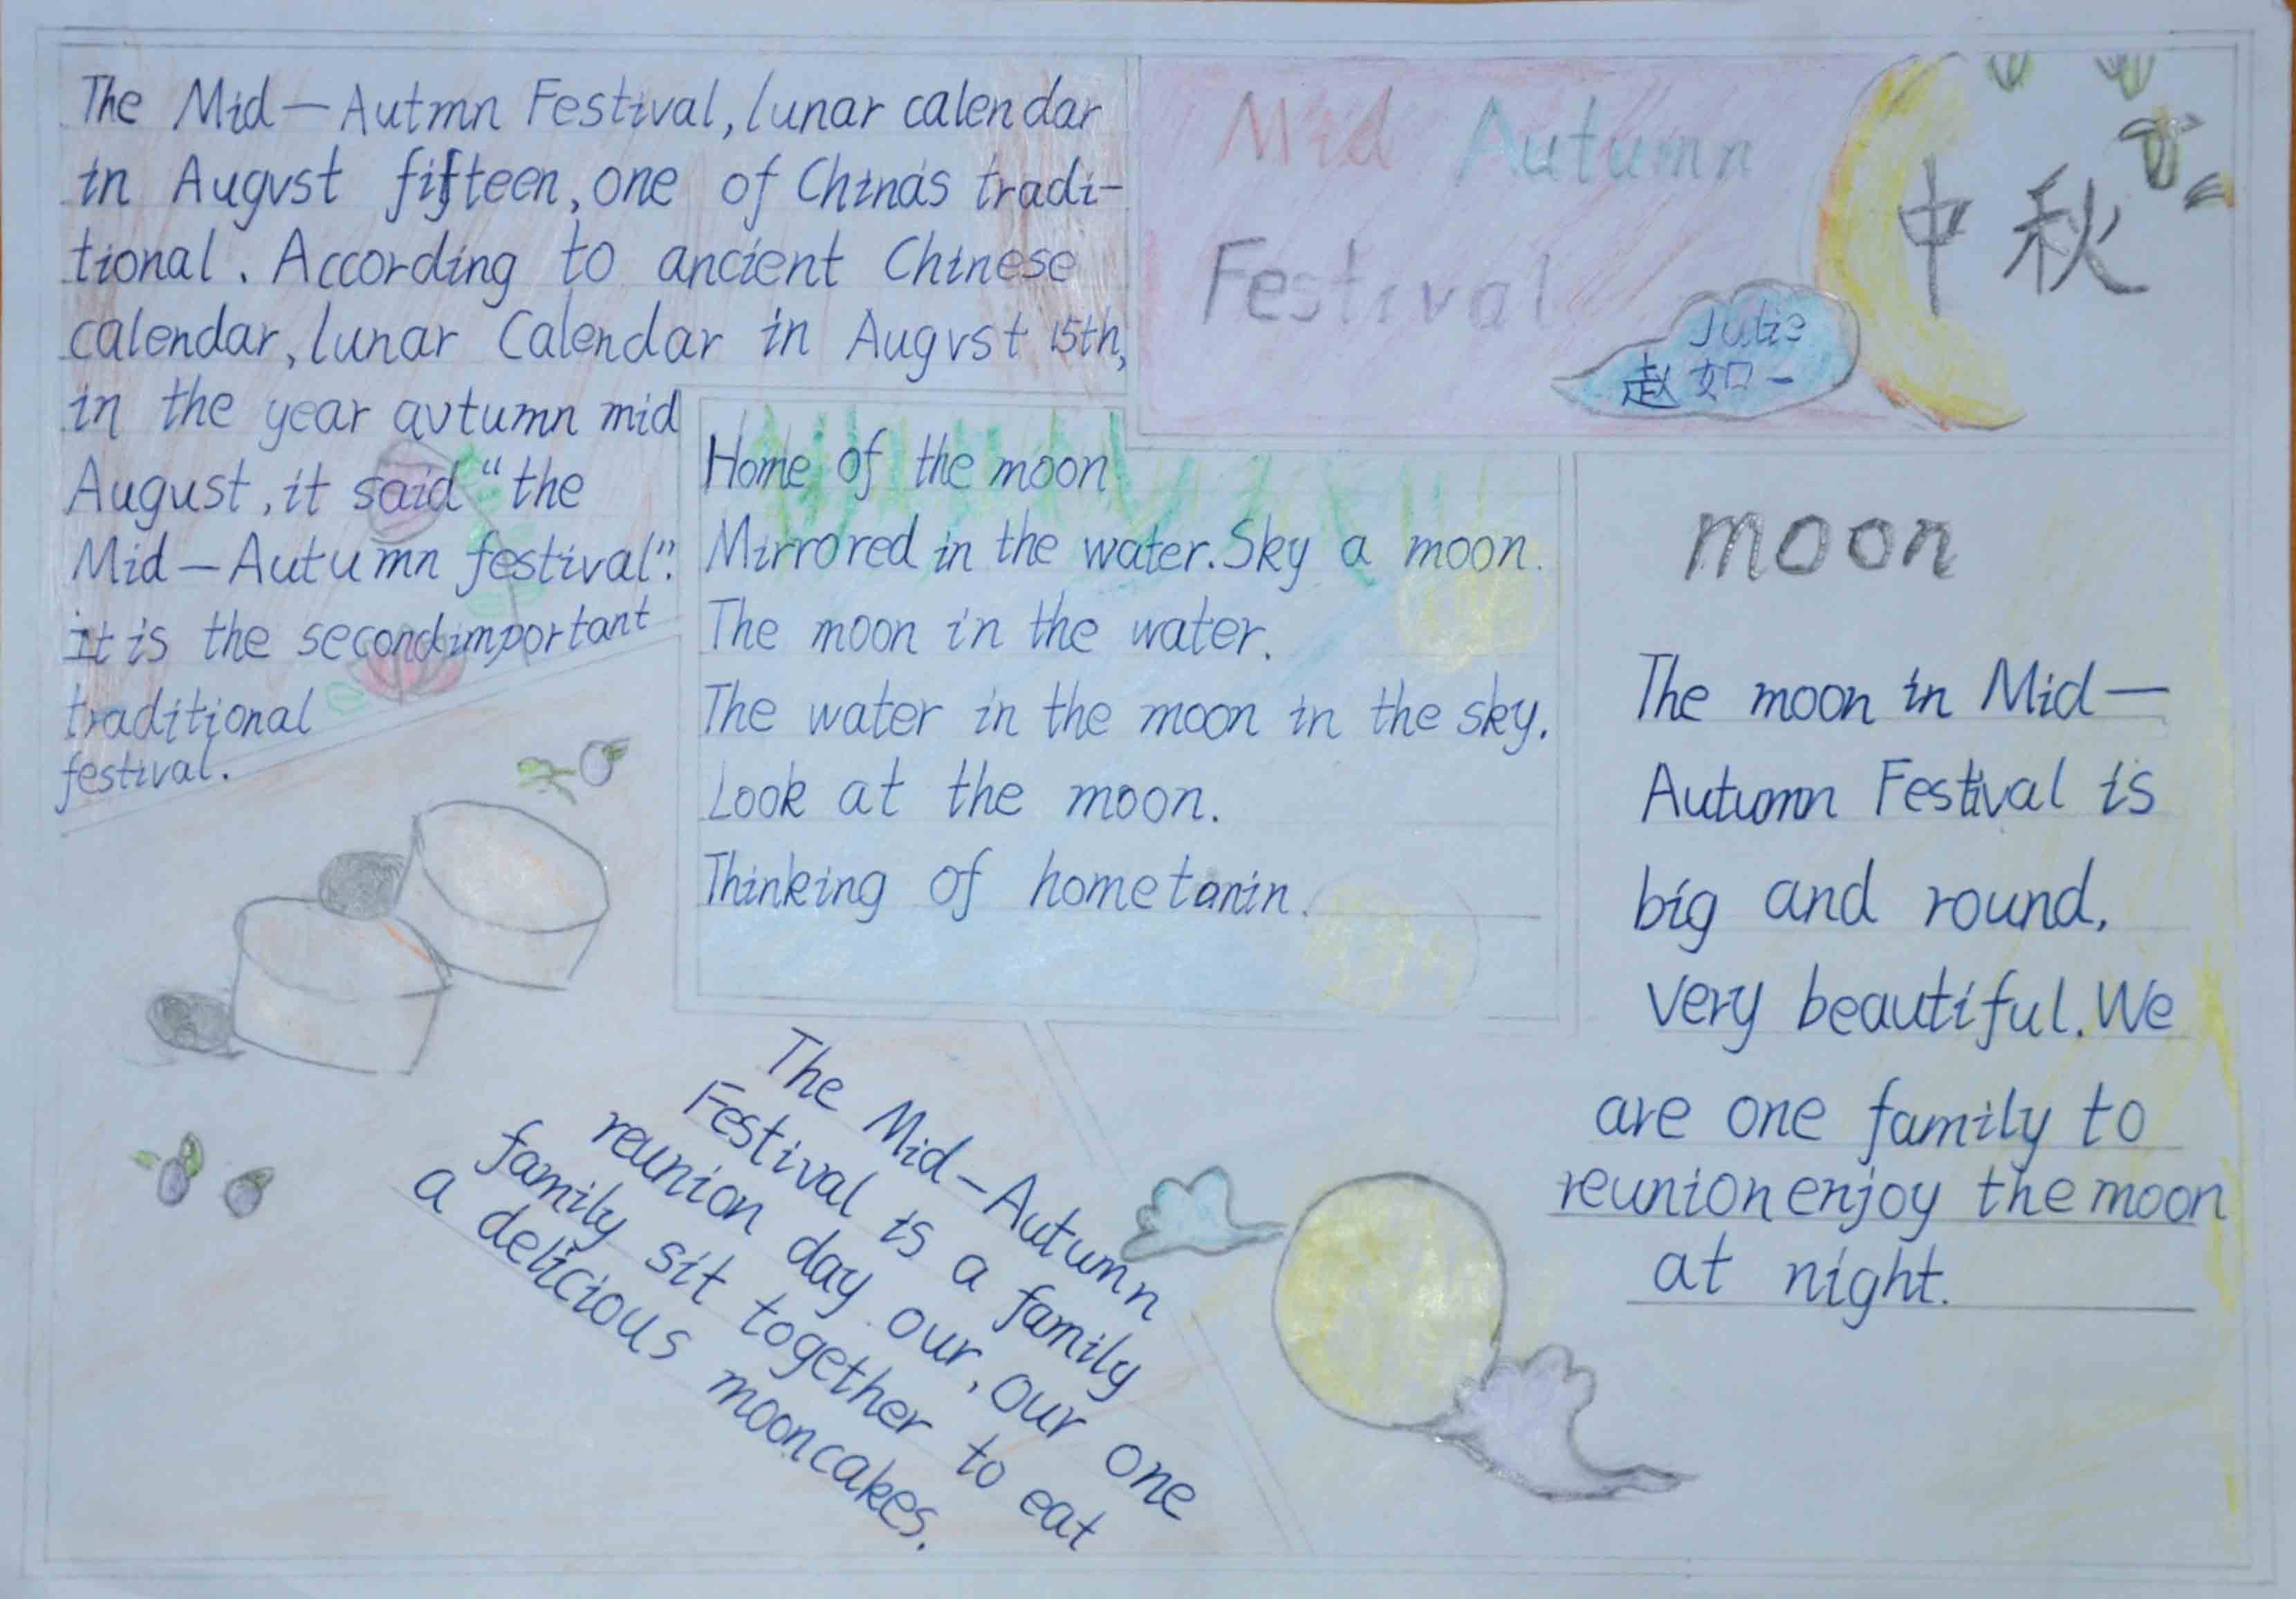 The Mid-Autmn Festival, lunar calendar
in August fifteen, one of China's tradi-
tional. According to ancient Chinese
calendar, lunar Calendar in August 15th,
in the year autumn mid
August, it said "the
Mid-Autumn festival".
it is the second important
traditional
festival.
Mid Autumn
Festival
中秋
Julie
赵如一
Home of the moon
Mirrored in the water. Sky a moon.
The moon in the water.
The water in the moon in the sky.
Look at the moon.
Thinking of home
moon
The moon in Mid-
Autumn Festival is
big and round,
very beautiful. We
are one family to
reunion enjoy the moon
at night.
The Mid-Autumn
Festival is a family
reunion day our, our one
family sit together to eat
a delicious mooncakes.